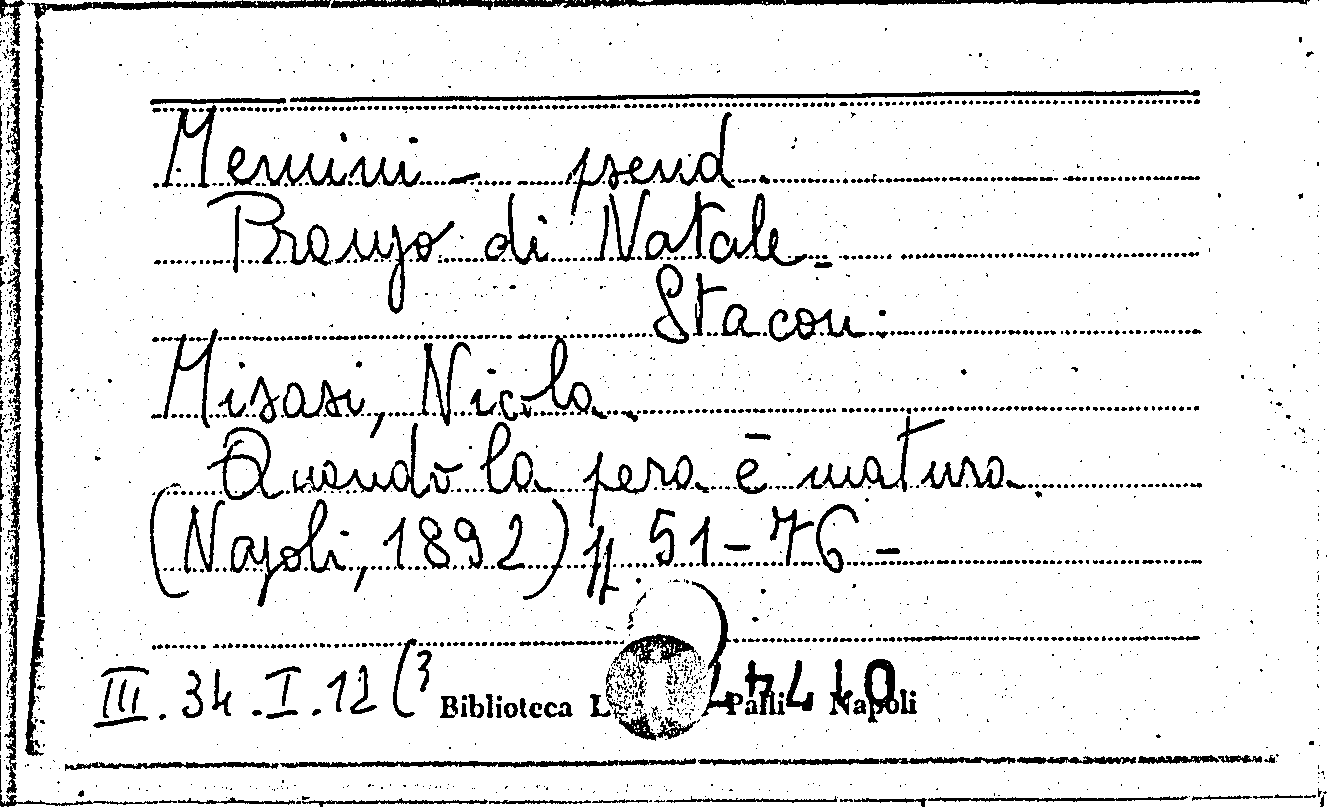 Memini - pseud.
Pranzo di Natale.
Sta con:
Misasi, Nicola.
Quando la pera è matura.
(Napoli, 1892) pp. 51-76-
III. 34. I. 12 (3
Biblioteca Palli Napoli